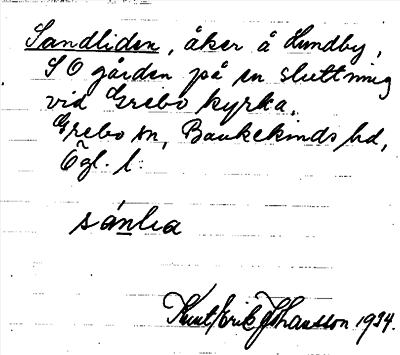 Sandliden, åker å Lundby,
SO gården på en sluttning
vid Grebo kyrka.
Grebo sn, Bankekinds hd,
Ögl. l.
Knut Erik Johansson 1934.